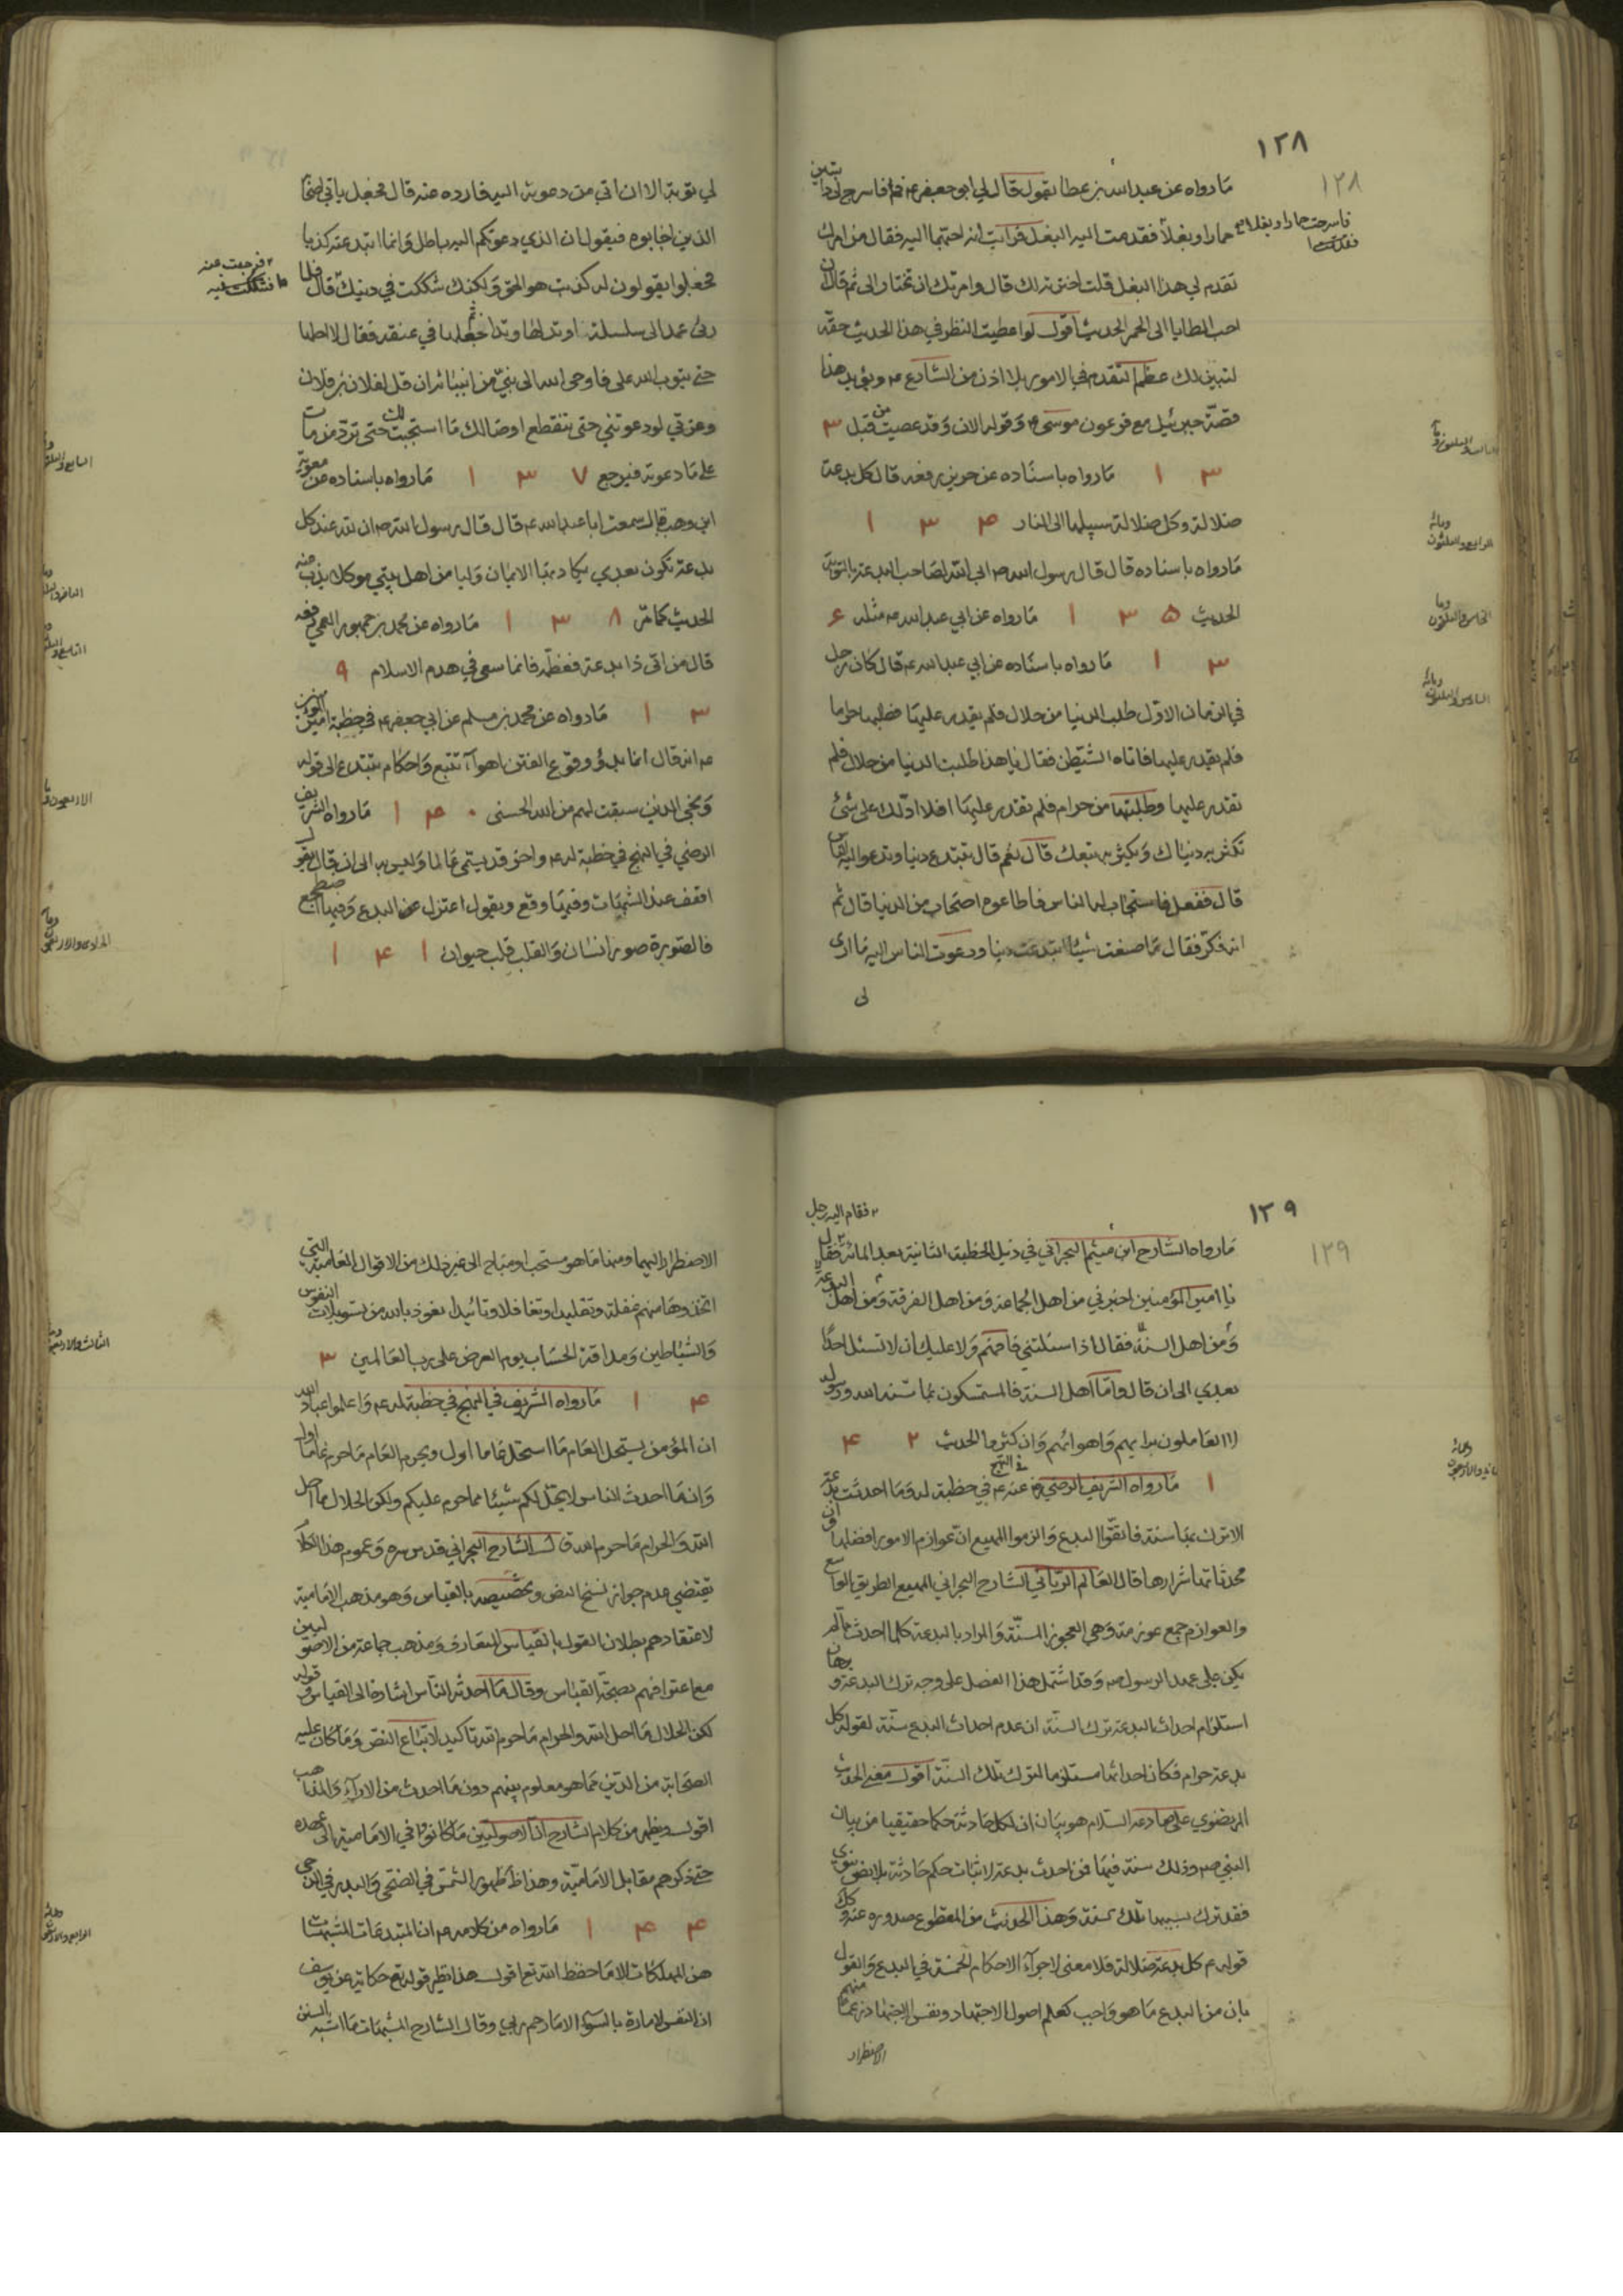 ١٢٨
١٢٨
ما رواه عن عبدالله بن عطا يقول قال لي ابو جعفر ع قم فاسرج لي دابتين
حمارا وبغلا فقدمت اليه البغل فرايت انه احبهما اليه فقال من امرك
تقدم لي هذا البغل قلت اخترته لك قال وامرتك ان تختار لي ثم قال ان
احب المطايا الي الحمر الحديث اقول لو اعطيت النظر في هذا الحديث حقه
لتبين لك عظم التقدم في الامور بلا اذن من الشارع ع ويؤيد هذا
قصة جبرئيل مع فرعون موسى ع وقوله الان وقد عصيت من قبل ٣
٣ ١ ما رواه باسناده عن حريز رفعه قال كل بدعة
ضلالة وكل ضلالة سبيلها الى النار ۴ ٣ ١
ما رواه باسناده قال قال رسول الله ص ابى الله لصاحب البدعة بالتوبة
الحديث ۵ ٣ ١ ما رواه عن ابي عبدالله ع مثله ۶
٣ ١ ما رواه باسناده عن ابي عبدالله ع قال كان رجل
في الزمان الاول طلب الدنيا من حلال فلم يقدر عليها فطلبها حراما
فلم يقدر عليها فاتاه الشيطن فقال يا هذا طلبت الدنيا من حلال فلم
تقدر عليها وطلبتها من حرام فلم تقدر عليها افلا ادلك على شئ
تكثر به دنياك ويكثر به تبعك قال نعم قال تبتدع دينا وتدعو اليه الناس
قال ففعل فاستجاب له الناس فاطاعوه اصحاب من الدنيا قال ثم
انه فكر فقال ما صنعت شيئا ابتدعت دينا ودعوت الناس اليه ما ارى
لى
لي توبة الا ان اتي من دعوته اليه فارده عنه قال فجعل ياتي اصحابه
الذين اجابوه فيقول ان الذي دعوتكم اليه باطل وانما ابتدعته كذبا
فجعلوا يقولون له كذبت هو الحق ولكنك شككت في دينك قال فلما
راى عمد الى سلسلة اوتد لها وتدا ثم جعلها في عنقه فقال لا احلها
حتى يتوب الله علي فاوحى الله الى نبي من انبيائه ان قل لفلان بن فلان
وعزتي لو دعوتني حتى تنقطع اوصالك ما استجبت لك حتى ترد من مات
على ما دعوته فيرجع ٧ ٣ ١ ما رواه باسناده عن معوية
ابن وهب قال سمعت ابا عبدالله ع قال قال رسول الله ص ان لله عند كل
بدعة تكون بعدي يكاد بها الايمان وليا من اهل بيتي موكل يذب عنه
الحديث كما مر ٨ ٣ ١ ما رواه عن محمد بن جمهور العمي رفعه
قال من اتى ذا بدعة فعظمه فانما سعى في هدم الاسلام ٩
٣ ١ ما رواه عن محمد بن مسلم عن ابي جعفر ع في خطبة امير المؤمنين
ع انه قال انما بدؤ وقوع الفتن اهوآء تتبع واحكام تبتدع الى قوله
ونجى الذين سبقت لهم من الله الحسنى ٠ ۴ ١ ما رواه الشريف
الرضي في النهج في خطبة له ع واخر قد يسمى عالما وليس به الى ان قال يقول
اقف عند الشبهات وفيها وقع ويقول اعتزل عن البدع وفيها اضطجع
فالصورة صورة انسان والقلب قلب حيوان ١ ۴ ١
١٣٩
١٢٩
فقام اليه رجل
ما رواه الشارح ابن ميثم البحراني في ذيل الخطبة الثانية بعد المائة فقال
يا امير المؤمنين اخبرني من اهل الجماعة ومن اهل الفرقة ومن اهل البدعة
ومن اهل السنة فقال اذا سئلتني فافهم ولا عليك ان لا تسئل احدا
بعدي الى ان قال واما اهل السنة فالمستمسكون بما سنه الله ورسوله
العاملون برايهم واهوائهم وان كثروا الحديث ٢ ۴
١ ما رواه الشريف الرضي في النهج عنه ع في خطبة له وما احدثت بدعة
الا ترك بها سنة فاتقوا البدع والزموا المهيع ان عوازم الامور افضلها وان
محدثاتها شرارها قال العالم الرباني الشارح البحراني المهيع الطريق الواسع
والعوازم جمع عوزمة وهي العجوز المسنة والمراد بالبدعة كلما احدث مما لم
يكن على عهد الرسول ص وقد اشتمل هذا الفصل على وجه ترك البدعة وبرهان
استلزام احداث البدعة ترك السنة ان عدم احداث البدع سنة لقوله كل
بدعة حرام فكان احداثها مستلزما لترك تلك السنة اقول معنى الحديث
المرتضوي على صادعه السلام هو بيان ان لكل حادثة حكما حقيقيا من بيان
النبي ص وذلك سنة فيها فمن احدث بدعة لاثبات حكم حادثة بلا نص نبوي
فقد ترك بسببها تلك سنة وهذا الحديث من المقطوع صدوره عنه وكك
قوله ع كل بدعة ضلالة فلا معنى لاجرآء الاحكام الخمسة في البدع والقول
بان من البدع ما هو واجب كعلم اصول الاجتهاد ونفس الاجتهاد زعما منهم
الاضطرار
الاضطرار اليهما ومنها ما هو مستحب او مباح الى غير ذلك من الاقوال العامية التي
اتخذوها منهم غفلة وتقليدا وتغافلا وتائيدا نعوذ بالله من تسويلات النفوس
والشياطين ومداقة الحساب يوم العرض على رب العالمين ٣
۴ ١ ما رواه الشريف في النهج في خطبة له ع واعلموا عباد الله
ان المؤمن يستحل العام ما استحل عاما اول ويحرم العام ما حرم عاما اول
وان ما احدث الناس لا يحل لكم شيئا مما حرم عليكم ولكن الحلال ما احل
الله والحرام ما حرم الله قال الشارح البحراني قدس سره وعموم هذا الكلام
تقتضي عدم جواز نسخ النص وتخصيصه بالقياس وهو مذهب الامامية
لاعتقادهم بطلان القول بالقياس المتعارف ومذهب جماعة من الاصوليين
مع اعترافهم بصحة القياس وقال ما احدثه الناس اشارة الى القياس وقوله
لكن الحلال ما احل الله والحرام ما حرم الله تاكيد لاتباع النص وما كان عليه
الصحابة من الدين مما هو معلوم بينهم دون ما احدث من الارآء والمذاهب
اقول ويظهر من كلام الشارح ان الاصوليين ما كانوا في الامامية الى عهده
حتى ذكرهم مقابل الامامية وهذا ظ ظهور الشمس في الضحى والبدر في الدجى
۴ ۴ ١ ما رواه من كلامه ع ان المبتدعات المشبهات
هن المهلكات الا ما حفظ الله تع اقول هذا نظير قوله تع حكاية عن يوسف
ان النفس لامارة بالسوء الا ما رحم ربي وقال الشارح المشبهات ما اشبه السنن